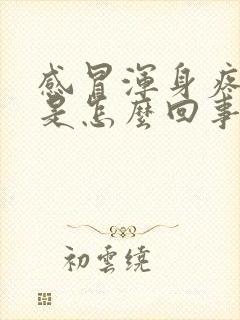 感冒渾身疼
是怎麼回事
初雲繞